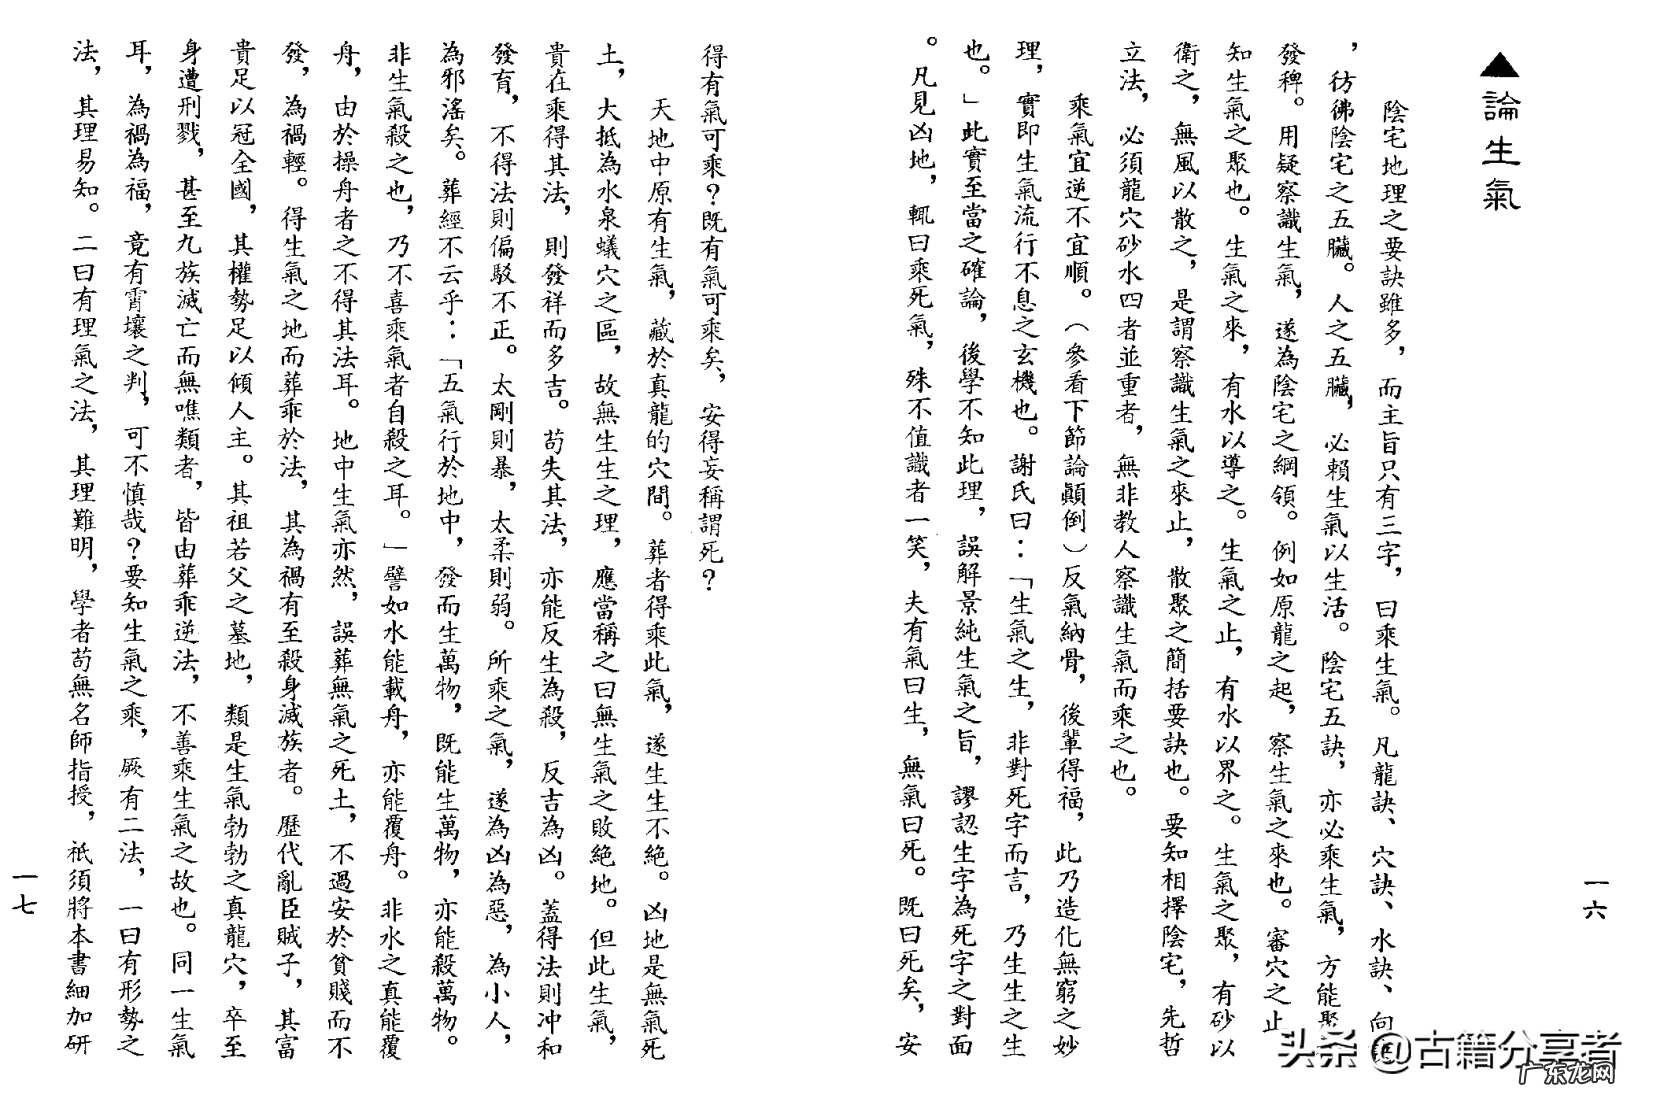 ▲論生氣
陰宅地理之要訣雖多，而主旨只有三字，曰乘生氣。凡龍訣、穴訣、水訣、向
，彷彿陰宅之五臟。人之五臟，必賴生氣以生活。陰宅五訣，亦必乘生氣，方能聚
發稗。用疑察識生氣，遂為陰宅之綱領。例如原龍之起，察生氣之來也。審穴之止
知生氣之聚也。生氣之來，有水以導之。生氣之止，有水以界之。生氣之聚，有砂以
衛之，無風以散之，是謂察識生氣之來止，散聚之簡括要訣也。要知相擇陰宅，先哲
立法，必須龍穴砂水四者並重者，無非教人察識生氣而乘之也。
乘氣宜逆不宜順。（參看下節論顛倒）反氣納骨，後輩得福，此乃造化無窮之妙
理，實即生氣流行不息之玄機也。謝氏曰：「生氣之生，非對死字而言，乃生生之生
也。」此實至當之確論，後學不知此理，誤解景純生氣之旨，謬認生字為死字之對面
。凡見凶地，輒曰乘死氣，殊不值識者一笑，夫有氣曰生，無氣曰死。既曰死矣，安
一六
得有氣可乘？既有氣可乘矣，安得妄稱謂死？
天地中原有生氣，藏於真龍的穴間。葬者得乘此氣，遂生生不絕。凶地是無氣死
土，大抵為水泉蟻穴之區，故無生生之理，應當稱之曰無生氣之敗絕地。但此生氣，
貴在乘得其法，則發祥而多吉。苟失其法，亦能反生為殺，反吉為凶。蓋得法則冲和
發育，不得法則偏駁不正。太剛則暴，太柔則弱。所乘之氣，遂為凶為惡，為小人，
為邪滛矣。葬經不云乎：「五氣行於地中，發而生萬物，既能生萬物，亦能殺萬物。
非生氣殺之也，乃不喜乘氣者自殺之耳。」譬如水能載舟，亦能覆舟。非水之真能覆
舟，由於操舟者之不得其法耳。地中生氣亦然，誤葬無氣之死土，不過安於貧賤而不
發，為禍輕。得生氣之地而葬乖於法，其為禍有至殺身滅族者。歷代亂臣賊子，其富
貴足以冠全國，其權勢足以傾人主。其祖若父之墓地，類是生氣勃勃之真龍穴，卒至
身遭刑戮，甚至九族滅亡而無噍類者，皆由葬乖逆法，不善乘生氣之故也。同一生氣
耳，為禍為福，竟有霄壤之判，可不慎哉？要知生氣之乘，厥有二法，一曰有形勢之
法，其理易知。二曰有理氣之法，其理難明，學者苟無名師指授，祇須將本書細加研
一七
头条 @古籍分享者
广东龙网